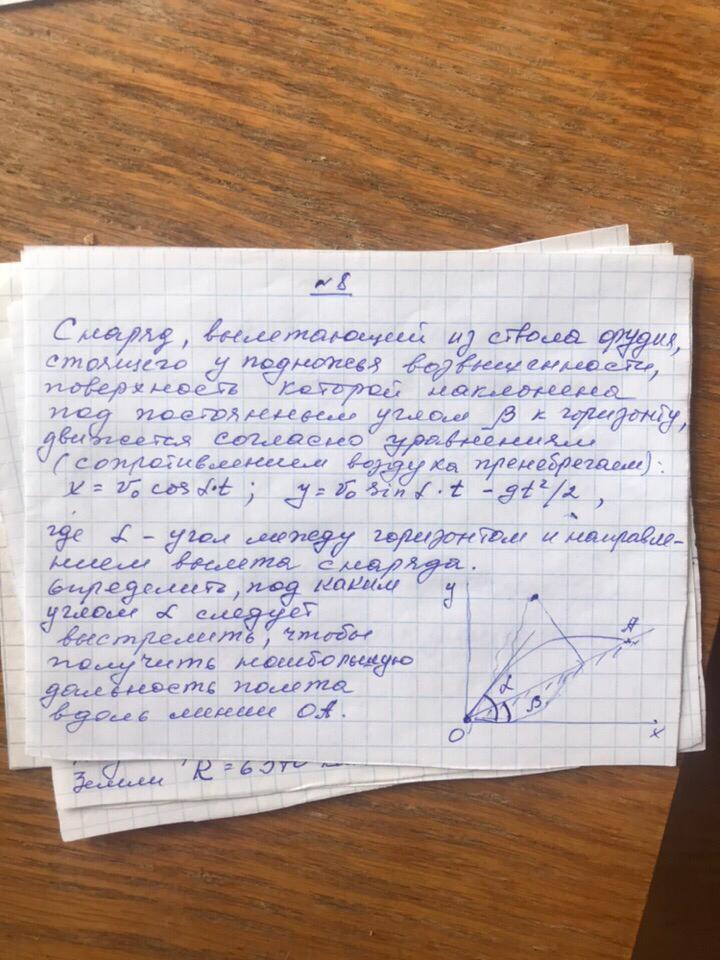 №8
Снаряд, вылетающий из ствола орудия,
стоящего у подножья возвышенности,
поверхность которой наклонена
под постоянным углом β к горизонту,
движется согласно уравнениям
(сопротивлением воздуха пренебрегаем):
x = v₀ cos α·t ; y = v₀ sin α · t - gt²/2 ,
где α - угол между горизонтом и направле-
нием вылета снаряда.
Определить, под каким
углом α следует
выстрелить, чтобы
получить наибольшую
дальность полета
вдоль линии OA.
y
A
α
β
O
x
Земли R = 6